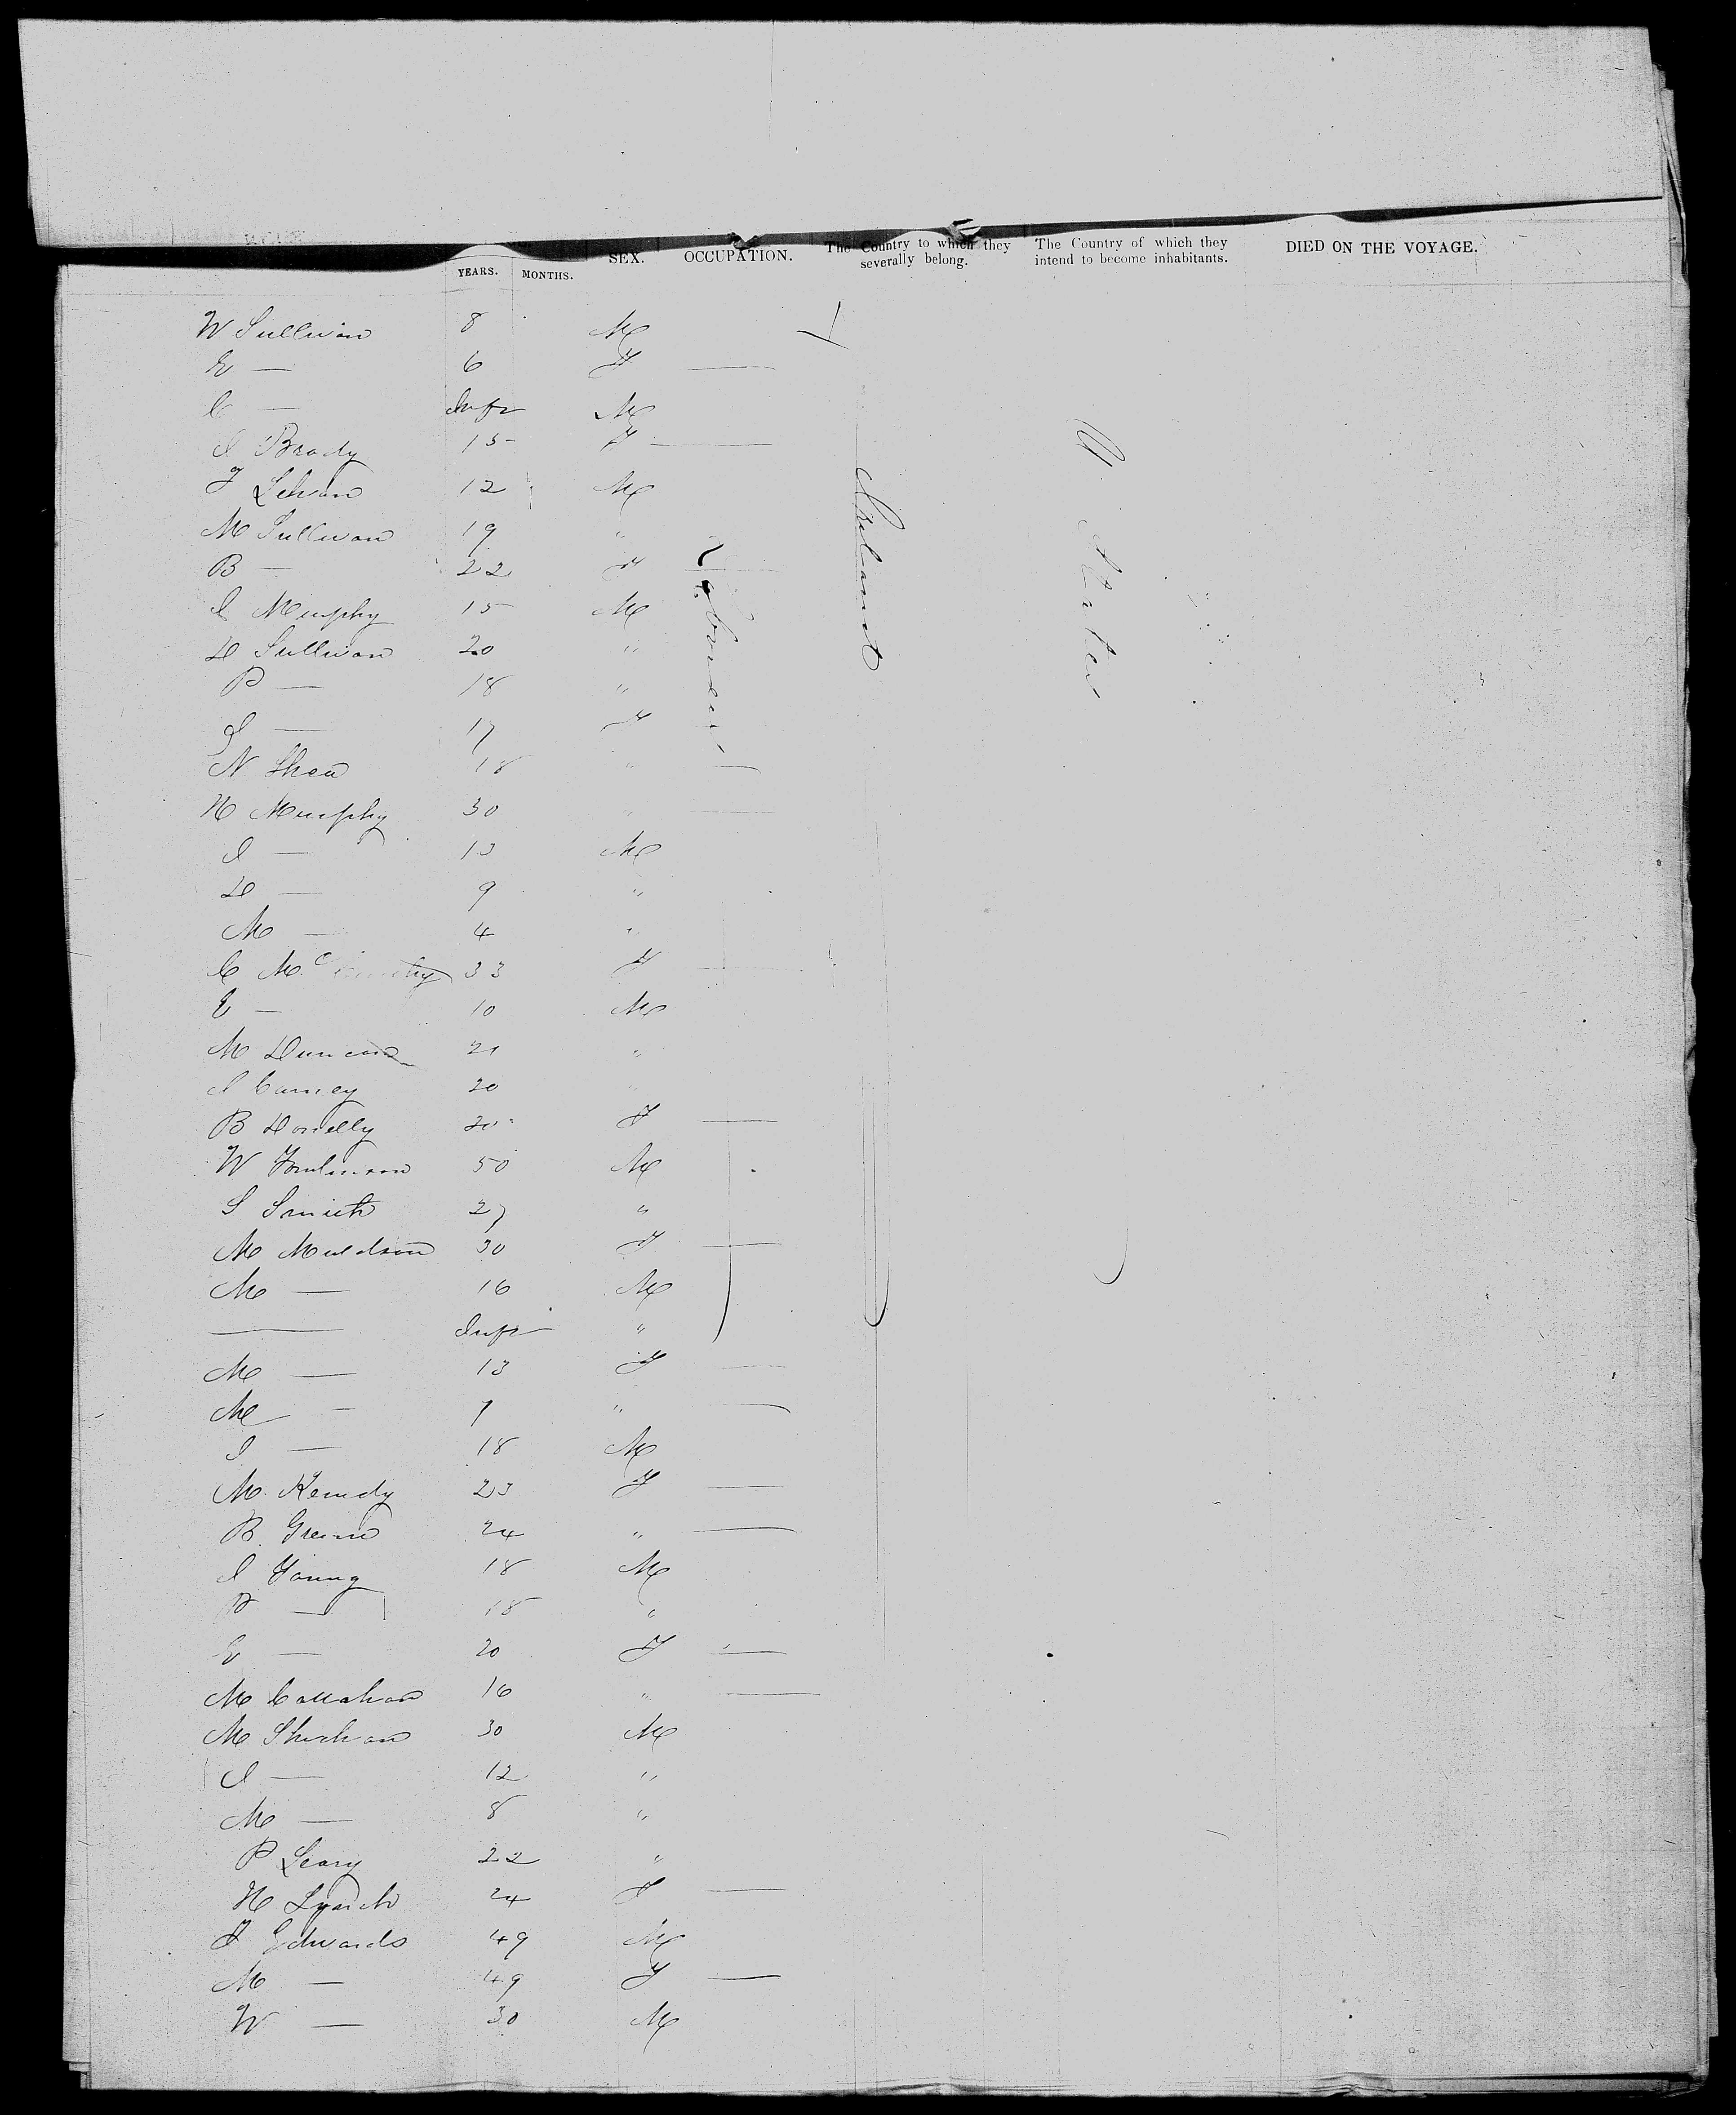 YEARS. MONTHS. SEX. OCCUPATION. The Country to which they severally belong. The Country of which they intend to become inhabitants. DIED ON THE VOYAGE.
W Sullivan 8 M
E — 6 F —
C — Inft M
J Brady 15 F —
T Lehan 12 M
M Sullivan 19 "
B — 22 F —
J Murphy 15 M
D Sullivan 20 "
P — 18 "
J — 17 F
N Shea 18 " —
H Murphy 30 " —
J — 13 M
D — 9 "
M — 4 "
C Mc 33 F —
E — 10 M
M Duncan 21 "
J Carney 20 "
B Donelly 20 F —
W Tomlinson 50 M
S Smith 27 "
M Muldson 30 F —
M — 16 M
— Inft "
M — 13 F —
M — 7 " —
J — 18 M
M. Kenedy 23 F —
B. Green 24 " —
J Young 18 M
P — 18 "
E — 20 F —
M Callahan 16 " —
M Shehan 30 M
J — 12 "
M — 8 "
P Leary 22 "
H Lynch 24 F —
J Edwards 49 M
M — 49 F —
W — 30 M
Labourers
Ireland
U States